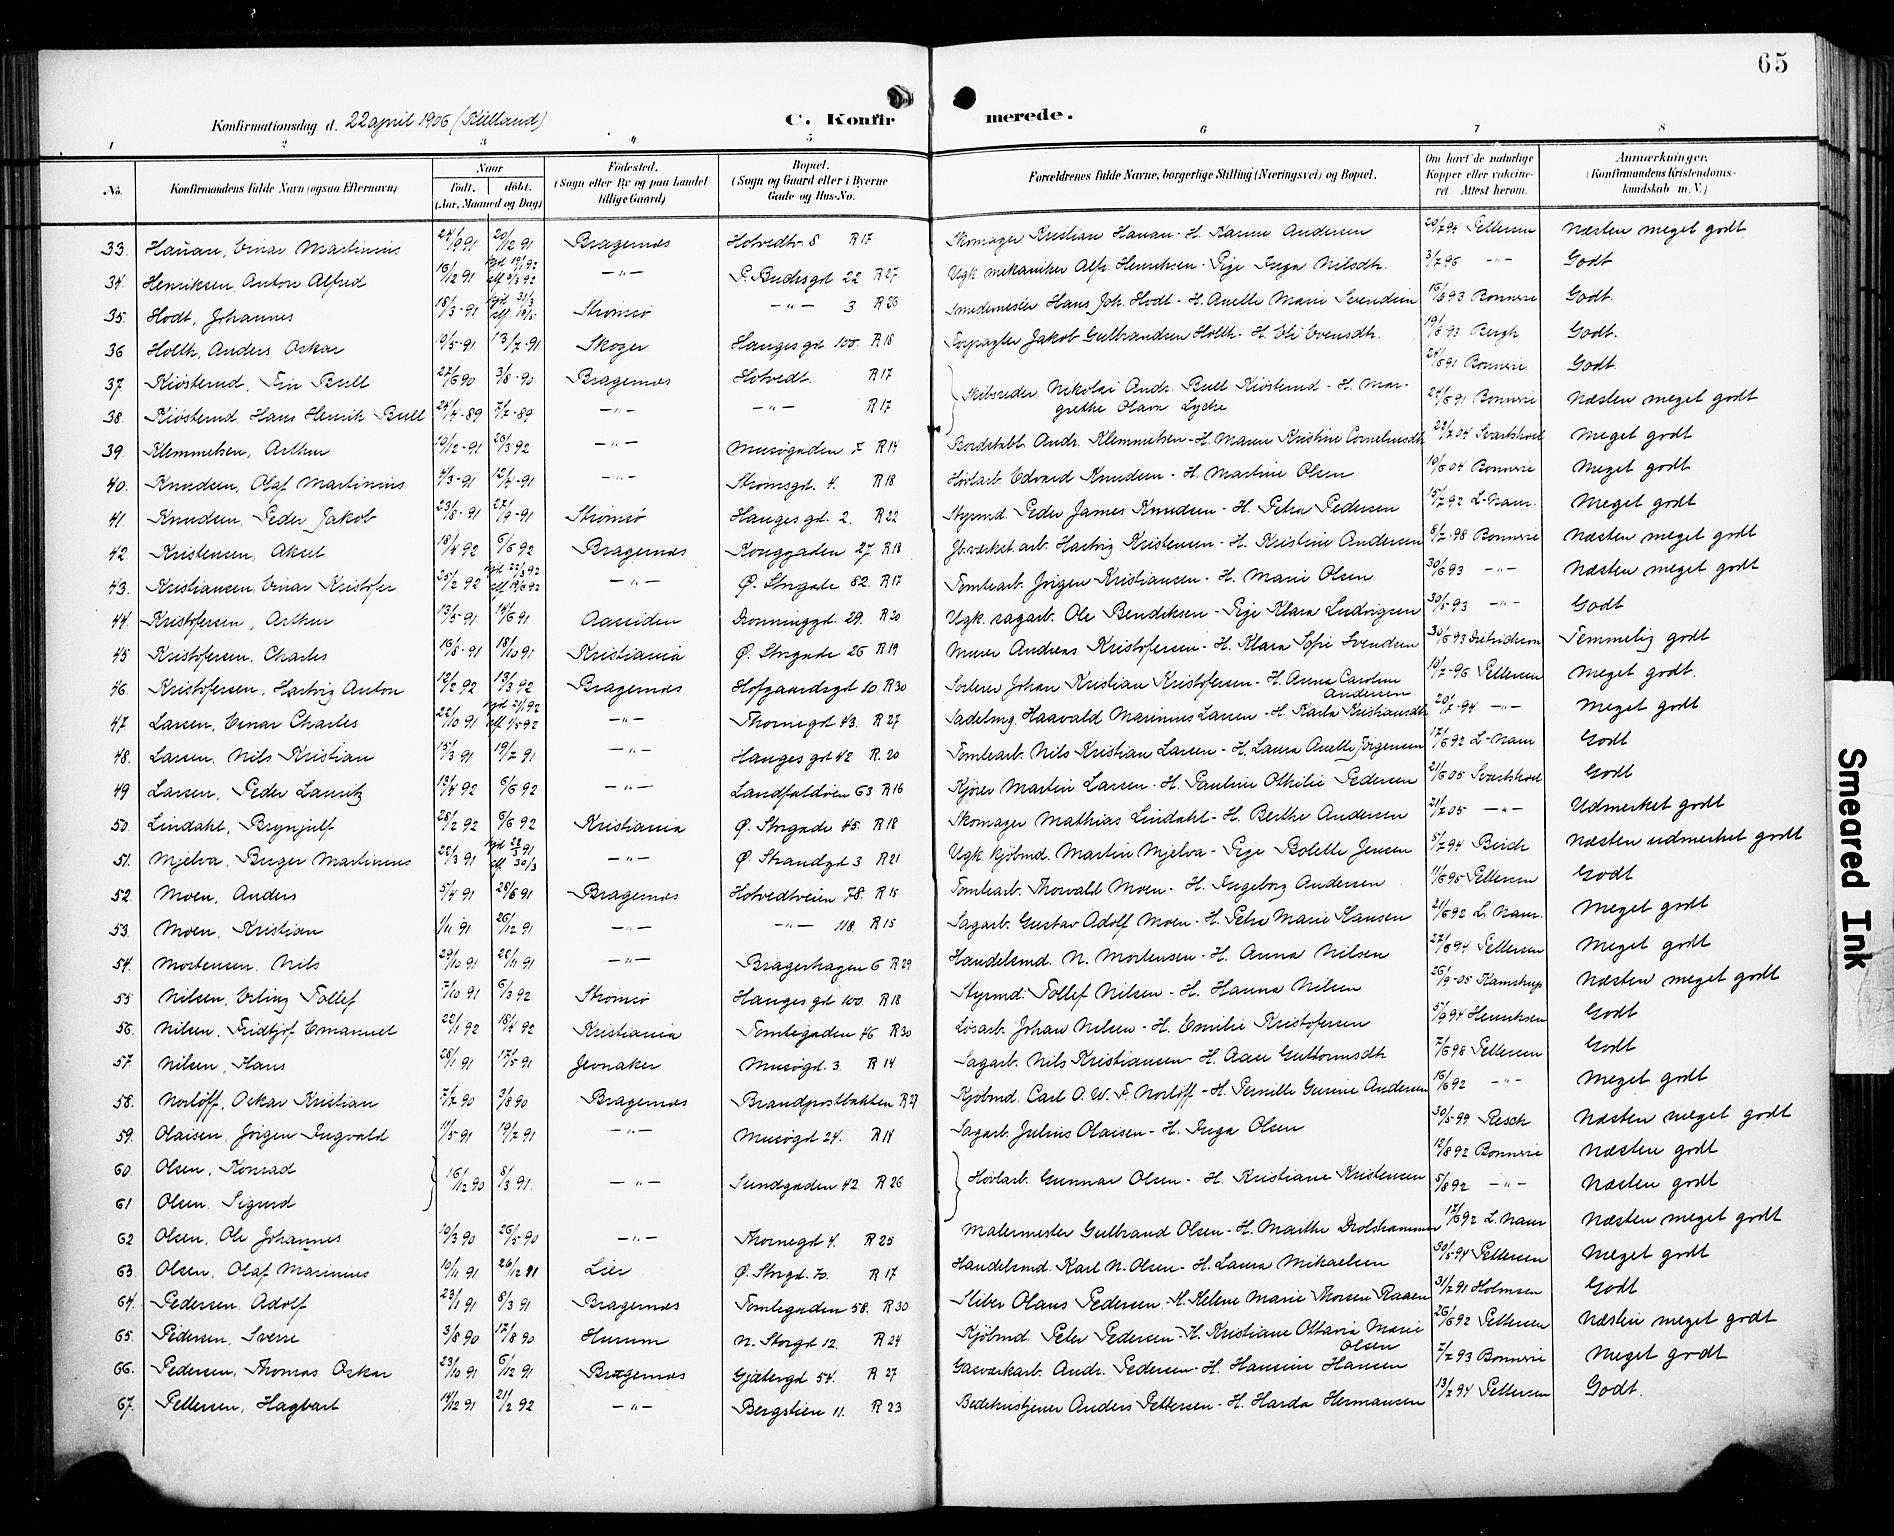 65
Konfirmationsdag d. 22 april 1906 (Killand)
C. Konfirmerede.
1 2 3 4 5 6 7 8
No. Konfirmandens fulde Navn (ogsaa Efternavn) Naar födt. döbt. (Aar, Maaned og Dag) Födested. (Sogn eller By og paa Landet tillige Gaard) Bopæl. (Sogn og Gaard eller i Byerne Gade og Hus-No. Forældrenes fulde Navne, borgerlige Stilling (Næringsvei) og Bopæl. Om havt de naturlige Kopper eller vakcineret. Attest herom. Anmærkninger. (Konfirmandens Kristendomskundskab m. V.)
33. Hauan, Einar Martinius 24/9 91 20/12 91 Bragernæs Hotvedtv. 8 R 17 Skomager Kristian Hauan - H. Karine Andersen 20/7 94 Pettersen Næsten meget godt
34. Henriksen, Anton Alfred 16/12 91 P. Budesgd 22 R 27 Ugk. mekaniker Alfr. Henriksen - Pige Inga Nilsdtr. 3/7 96 -"- Godt
35. Hodt, Johannes 18/3-91 Strømsø -"- 3 R 26 Smedemester Hans Joh. Hodt - H. Anette Marie Svendsen 16/6 93 Bonnevie Godt.
36 Holth, Anders Oskar 10/5-91 13/7-91 Skoger Hauges gd 100. R 18 Jakob Gulbrandsen Holth - H. Eli Evensdtr. 19/8 93 Bergh Godt.
37. Kiøsterud, Fin Bull 27/6 90 3/8-90 Bragernæs Hotvedt. R 17 Skibsreder Nikolai Andr. Bull Kiøsterud - H. Margrethe Olava Lyche 24/6 91 Bonnevie Godt
38. Kiøsterud, Hans Henrik Bull 24/4-89 7/7-89 -"- -"- R 17 24/6 91 Bonnevie Næsten meget godt
39. Klemmetsen, Arthur 10/12-91 20/3 92 -"- Musøgaden 7 R 14 Bordstabl. Andr. Klemmetsen - H. Maren Kristine Corneliusdtr 22/7 04 Meget godt
40. Knudsen, Olaf Martinius 4/3-91 12/4-91 -"- Strømsgd. 4. R 18 Høvlarb. Edvard Knudsen - H. Martine Olsen 10/6 04 Bonnevie Meget godt
41. Knudsen, Peder Jakob 23/8-91 27/9-91 Strømsø Hauges gd. 2. R 22 Styrmd. Peder James Knudsen - H. Petra Pedersen 15/7 92 L. Naur. Meget godt
42. Kristensen, Aksel 18/4 92 6/6 92 Bragernæs Konggaden 27. R 18 Jb.verket arb. Hartvig Kristensen - H. Kristine Andersen 8/7-98 Bonnevie Næsten meget godt
43. Kristiansen, Einar Kristofer 25/2 92 -"- Ø. Storgade 82. R 17 Tomtearb. Jørgen Kristiansen - H. Marie Olsen 30/6 93 -"- Næsten meget godt
44. Kristofersen, Arthur 13/5-91 14/6 91 Aassiden Dronninggd. 29. R 20 Ugk. sagarb. Ole Bendiksen - Pige Klara Ludvigsen 30/5-93 -"- Godt
45 Kristofersen, Charles 16/8-91 18/10 91 Kristiania Ø. Storgade 26 R 19 Murer Andreas Kristofersen - H. Klara Sofie Svendsen 30/6 93 Dietrichson Temmelig godt
46. Kristofersen, Hartvig Anton 12/2 92 13/3 92 Bragernæs Hofgaardsgd 10. R 30 Sorterer Johan Kristian Kristofersen - H. Anna Caroline Andersen 10/7-96 Pettersen Meget godt.
47. Larsen, Einar Charles 22/10 91 -"- Thornegd 43. R 27 Sadelmg. Haavald Marinius Larsen - H. Karla Kristiansdtr 20/7-94 -"- Meget godt
48. Larsen, Nils Kristian 15/3 91 19/7 91 -"- Hauges gd 42 R. 20 Tomtearb. Nils Kristian Larsen - H. Laura Anette Jørgensen 17/6 92 L. Naur Godt
49 Larsen, Peder Lauritz 13/4 92 6/6 92 -"- Landfaldøen 63 R 16 Kjører Martin Larsen - H. Pauline Othilie Pedersen 21/6 05 Godt
50. Lindahl, Brynjulf 28/2 92 6/6 92 Kristiania Ø. Storgade 45. R 18 Skomager Mathias Lindahl - H. Berthe Andersen 21/7 05 -"- Udmerket godt
51. Mjelva, Birger Martinius 22/3 91 -"- Ø. Strandgd 3 R 21 Ugk. kjøbmd. Martin Mjelva - Pige Bolette Jensen 5/7 94 Næsten udmerket godt
52. Moen, Anders 5/4 91 28/6 91 Bragernæs Hotvedtveien 78. R 15 Tomtearb. Thorvald Moen - H. Ingeborg Andersen 11/6 95 Pettersen Godt
53. Moen, Kristian 1/11 91 26/12 91 -"- -"- 118. R 15 Sagarb. Gustav Adolf Moen - H. Petra Marie Hansen 21/6 92 L. Naur. Meget godt
54. Mortensen, Nils 29/10 91 28/11 91 -"- Bragerhagen 6 R 29 Handelsmd. N. Mortensen - H. Anna Nilsen 27/8 94 Pettersen Meget godt
55 Nilsen, Erling Tollef 7/10 91 6/3 92 Strømsø Hauges gd 100. R 18 Styrmd. Tollef Nilsen - H. Hanna Nilsen 26/9-05 Kamstrup Næsten meget godt
56. Nilsen, Fridtjof Emanuel 22/1 92 18/4 92 Kristiania Tomtegaden 46 R 30 Løsarb. Johan Nilsen - H. Emilie Kristofersen 5/9 94 Henriksen Godt
57. Nilsen, Hans 28/1 91 17/5 91 Jevnaker Musøgd. 3. R 14 Sagarb. Nils Kristiansen - H. Aase Guttormsdtr 7/6 98 Pettersen Godt
58. Norløff, Oskar Kristian 7/7 90 3/8 90 Bragernæs Brandpostbakken R 27 Kjøbmd. Carl O. W. F. Norløff - H. Pernille Gunine Andersen 16/6 92 -"- Meget godt
59. Olaisen, Jørgen Ingvald 11/5 91 19/7 91 -"- Musøgd 24. R 14 Sagarb. Julius Olaisen - H. Inga Olsen 30/5-99 Resch Næsten meget godt
60. Olsen, Konrad 16/12 90 8/3 91. -"- Sundgaden 42. R 26 Høvlarb. Gunnar Olsen - H. Kristiane Kristensen 12/8 92 Bonnevie Næsten godt
61 Olsen, Sigurd 5/8 92 -"- Næsten godt
62 Olsen, Ole Johannes 10/3 90 26/5-90 -"- Thornegd 4. R 25 Malermester Gulbrand Olsen - H. Marthe Drolshammer 17/6 92 L. Naur Næsten meget godt
63. Olsen, Olaf Marinius 10/11 91 26/12 91 Lier Ø. Storgd. 70. R 17 Handelsmd. Karl N. Olsen - H. Laura Mikaelsen 30/5 94 Pettersen Meget godt
64. Pedersen, Adolf 23/1 91 8/3 91 Bragernæs Tomtegaden 58. R 30 Sliber Olaus Pedersen - H. Helene Marie Thorsen Raaen 31/7 91 Holmsen Godt
65. Pedersen, Sverre 3/8 90 17/8 90 Hurum N. Storgd 12. R 24 Kjøbmd. Peter Pedersen - H. Kristiane Ottavia Marie Olsen 26/6 92 Pettersen Næsten meget godt
66. Pedersen, Thomas Oskar 23/10 91 6/12 91 Bragernæs Gjetergd 54. R 27 Gasverkarb. Andr. Pedersen - H. Hansine Hansen 7/7 93 Bonnevie Meget godt
67. Pettersen, Hagbart 14/12 91 21/2 92 -"- Bergstien 11. R 23 Bedehustjener Anders Pettersen - H. Harda Hermansen 13/7 94 Pettersen Godt.
Smeared Ink